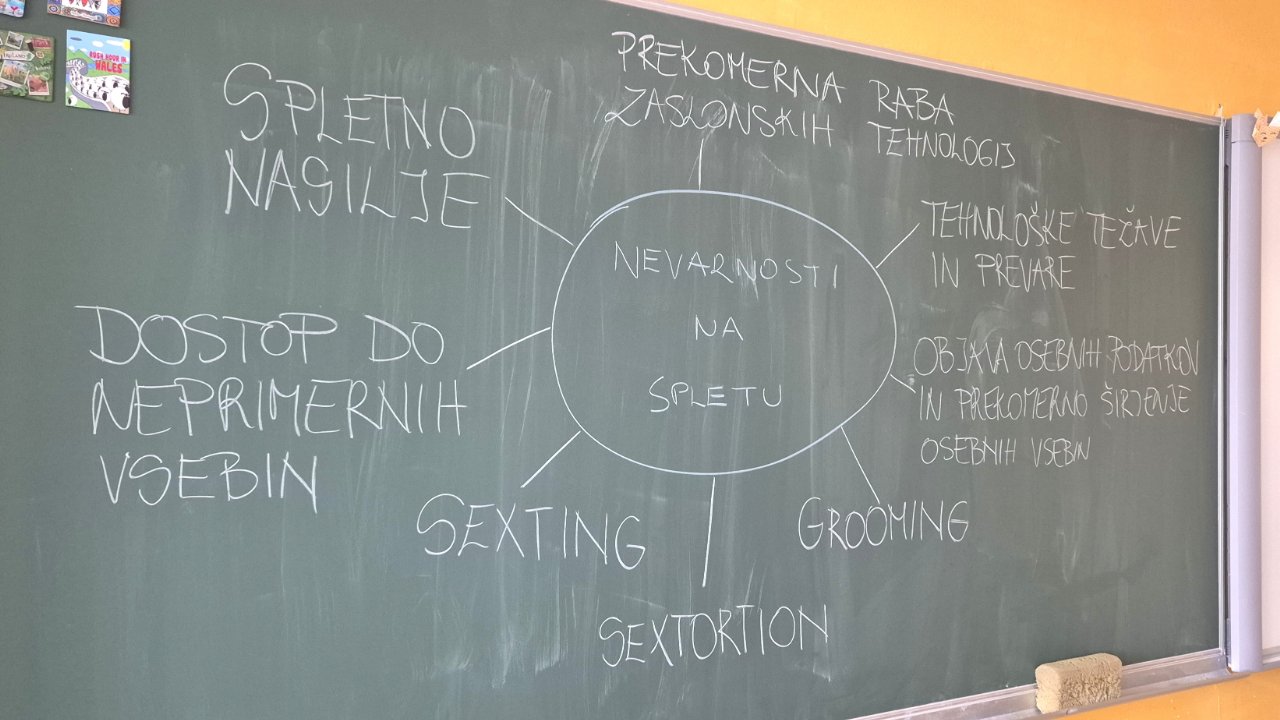 RUSH HOUR IN
WALES
PREKOMERNA RABA
ZASLONSKIH TEHNOLOGIJ
SPLETNO
NASILJE
TEHNOLOŠKE TEŽAVE
IN PREVARE
NEVARNOSTI
NA
SPLETU
DOSTOP DO
NEPRIMERNIH
VSEBIN
OBJAVA OSEBNIH PODATKOV
IN PREKOMERNO ŠIRJENJE
OSEBNIH VSEBIN
SEXTING
GROOMING
SEXTORTION